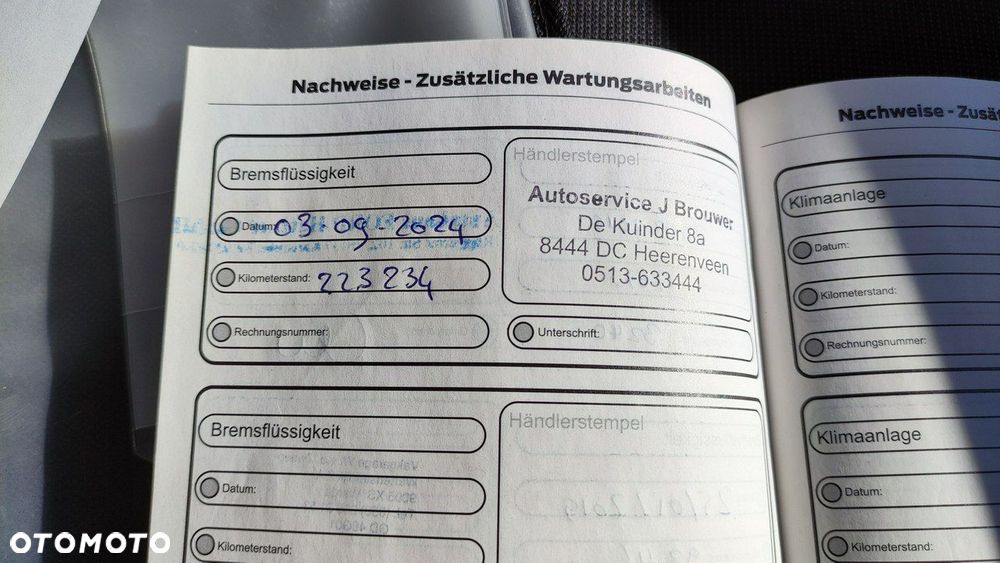 Nachweise - Zusätzliche Wartungsarbeiten
Bremsflüssigkeit
Datum: 03-09-2024
Kilometerstand: 223234
Rechnungsnummer:
Händlerstempel
Autoservice J Brouwer
De Kuinder 8a
8444 DC Heerenveen
0513-633444
Unterschrift:
Bremsflüssigkeit
Datum:
Kilometerstand:
Händlerstempel
Nachweise - Zusät
Klimaanlage
Datum:
Kilometerstand:
Rechnungsnummer:
Klimaanlage
Datum:
Kilometerstand:
OTOMOTO